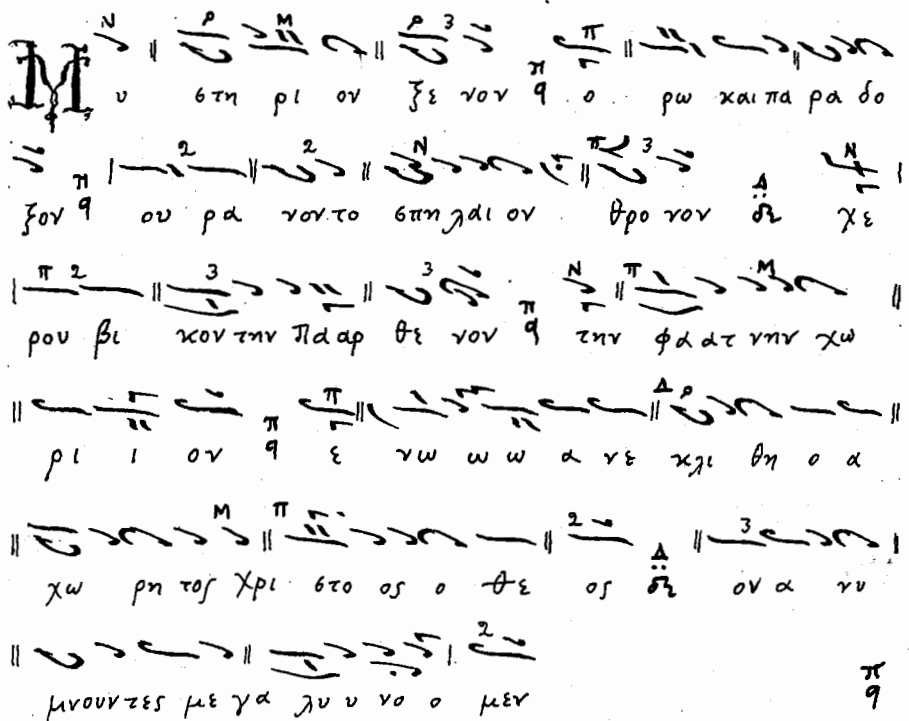 Μ υ στη ρι ον ξε νον ο ρω και πα ρα δο
ξον ου ρα νον το σπη λαι ον θρο νον χε
ρου βι κον την Πα αρ θε νον την φα ατ νην χω
ρι ι ον ε νω ω ω α νε κλι θη ο α
χω ρη τος Χρι στο ος ο θε ος ον α νυ
μνουν τες με γα λυ υ νο ο μεν